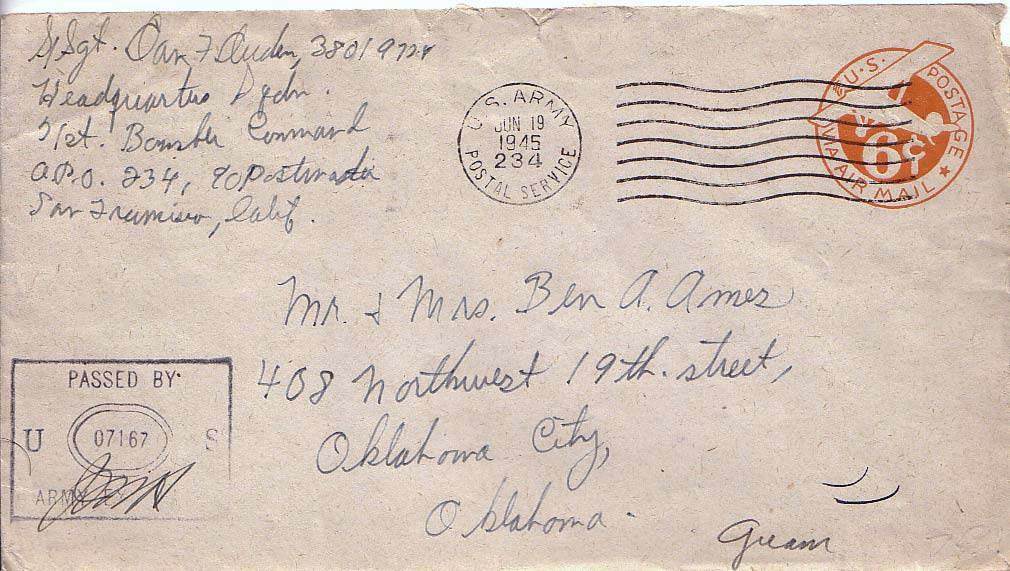 S/Sgt. 38019724
Headquarters Sqdn.
21st. Bomber Command
A.P.O. 234, % Postmaster
San Francisco, Calif.
U.S. ARMY
JUN 19
1945
234
POSTAL SERVICE
U.S. POSTAGE
6¢
VIA AIR MAIL
Mr. & Mrs. Ben A. Ames
408 Northwest 19th. street,
Oklahoma City,
Oklahoma.
PASSED BY
U 07167 S
ARMY
Guam